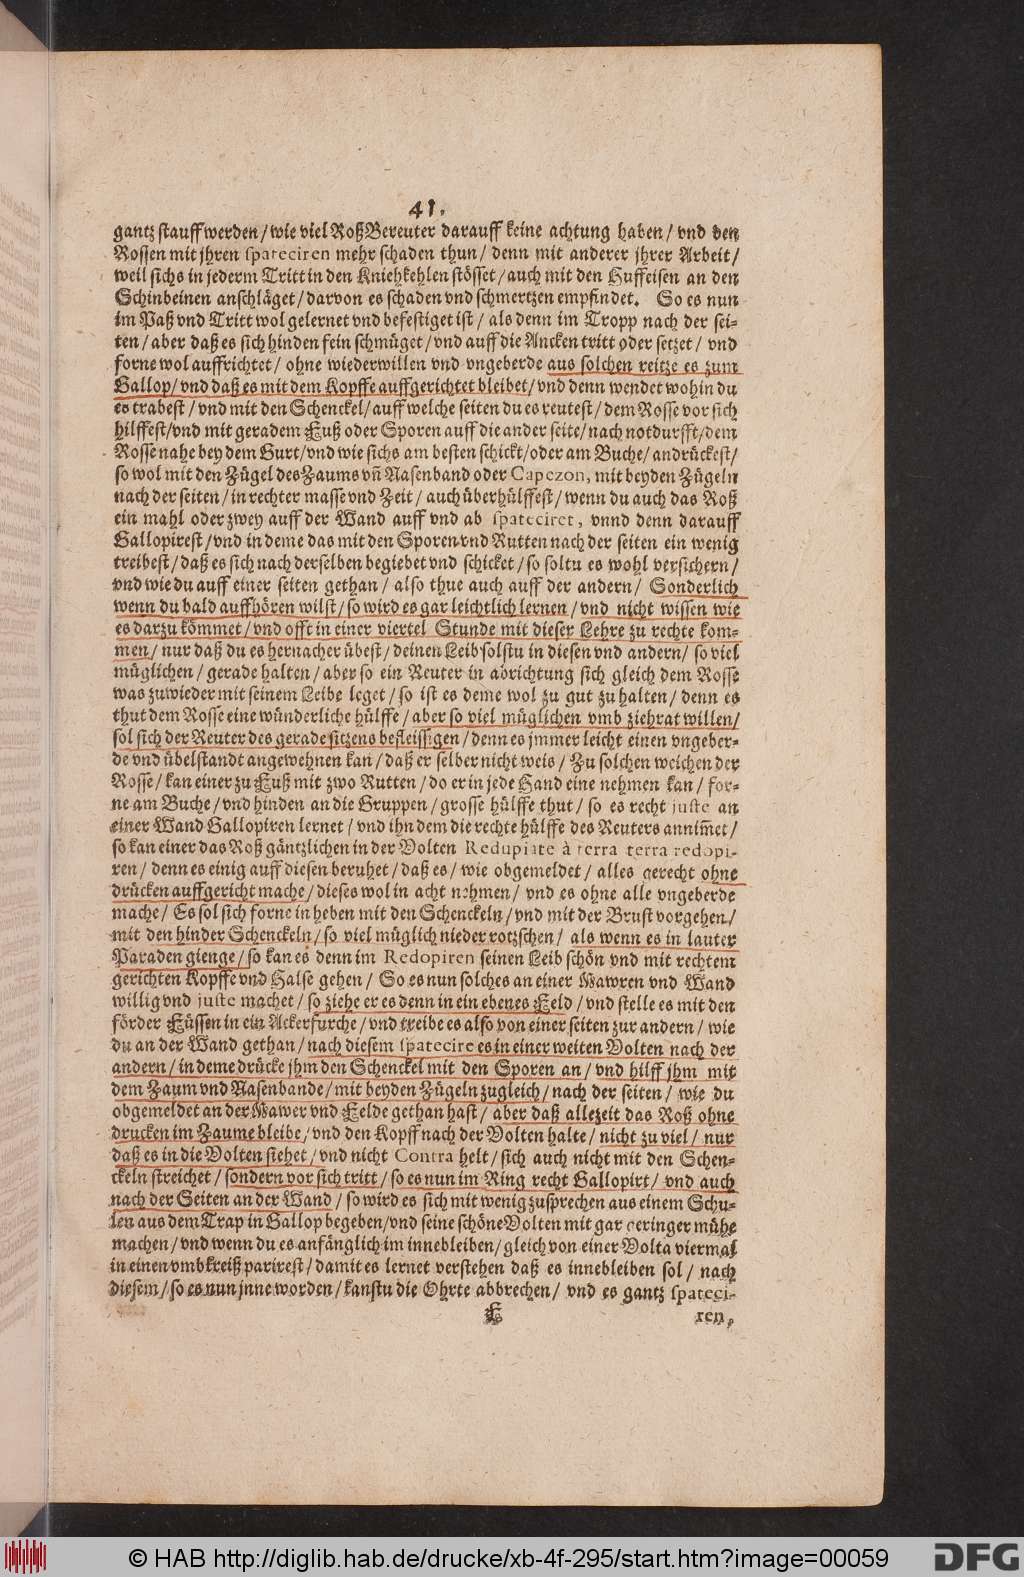 41.
gantz stauff werden / wie viel Roß Bereuter darauff keine achtung haben / vnd den
Rossen mit jhren spateciren mehr schaden thun / denn mit anderer jhrer Arbeit /
weil sichs in jederm Tritt in den Kniehkehlen stösset / auch mit den Huffeisen an den
Schinbeinen anschläget / darvon es schaden vnd schmertzen empfindet. So es nun
im Paß vnd Tritt wol gelernet vnd befestiget ist / als denn im Tropp nach der sei-
ten / aber daß es sich hinden fein schmüget / vnd auff die Ancken tritt oder setzet / vnd
forne wol auffrichtet / ohne wiederwillen vnd vngeberde aus solchen reitze es zum
Gallop / vnd daß es mit dem Kopffe auffgerichtet bleibet / vnd denn wendet wohin du
es trabest / vnd mit den Schenckel / auff welche seiten du es reutest / dem Rosse vor sich
hilffest / vnd mit geradem Fuß oder Sporen auff die ander seite / nach notdurfft / dem
Rosse nahe bey dem Gurt / vnd wie sichs am besten schickt / oder am Buche / andrückest /
so wol mit den Zügel des Zaums vñ Nasenband oder Capezon, mit beyden Zügeln
nach der seiten / in rechter masse vnd Zeit / auch überhülffest / wenn du auch das Roß
ein mahl oder zwey auff der Wand auff vnd ab spateciret, vnnd denn darauff
Gallopirest / vnd in deme das mit den Sporen vnd Rutten nach der seiten ein wenig
treibest / daß es sich nach derselben begiebet vnd schicket / so soltu es wohl versichern /
vnd wie du auff einer seiten gethan / also thue auch auff der andern / Sonderlich
wenn du bald auffhören wilst / so wird es gar leichtlich lernen / vnd nicht wissen wie
es darzu kömmet / vnd offt in einer viertel Stunde mit dieser Lehre zu rechte kom-
men / nur daß du es hernacher übest / deinen Leib solstu in diesen vnd andern / so viel
müglichen / gerade halten / aber so ein Reuter in abrichtung sich gleich dem Rosse
was zuwieder mit seinem Leibe leget / so ist es deme wol zu gut zu halten / denn es
thut dem Rosse eine wünderliche hülffe / aber so viel müglichen vmb ziehrat willen /
sol sich der Reuter des gerade sitzens befleissigen / denn es jmmer leicht einen vngeber-
de vnd übelstandt angewehnen kan / daß er selber nicht weis / Zu solchen weichen der
Rosse / kan einer zu Fuß mit zwo Rutten / do er in jede Hand eine nehmen kan / for-
ne am Buche / vnd hinden an die Gruppen / grosse hülffe thut / so es recht juste an
einer Wand Gallopiren lernet / vnd ihn dem die rechte hülffe des Reuters annim̃et /
so kan einer das Roß gäntzlichen in der Volten Redupiate à terra terra redopi-
ren / denn es einig auff diesen beruhet / daß es / wie obgemeldet / alles gerecht ohne
drücken auffgericht mache / dieses wol in acht nehmen / vnd es ohne alle vngeberde
mache / Es sol sich forne in heben mit den Schenckeln / vnd mit der Brust vorgehen /
mit den hinder Schenckeln / so viel müglich nieder rotzschen / als wenn es in lauter
Paraden gienge / so kan es denn im Redopiren seinen Leib schön vnd mit rechtem
gerichten Kopffe vnd Halse gehen / So es nun solches an einer Mawren vnd Wand
willig vnd juste machet / so ziehe er es denn in ein ebenes Feld / vnd stelle es mit den
förder Füssen in ein Ackerfurche / vnd treibe es also von einer seiten zur andern / wie
du an der Wand gethan / nach diesem spatecire es in einer weiten Volten nach der
andern / in deme drücke jhm den Schenckel mit den Sporen an / vnd hilff jhm mit
dem Zaum vnd Nasenbande / mit beyden Zügeln zugleich / nach der seiten / wie du
obgemeldet an der Mawer vnd Felde gethan hast / aber daß allezeit das Roß ohne
drucken im Zaume bleibe / vnd den Kopff nach der Volten halte / nicht zu viel / nur
daß es in die Volten siehet / vnd nicht Contra helt / sich auch nicht mit den Schen-
ckeln streichet / sondern vor sich tritt / so es nun im Ring recht Gallopirt / vnd auch
nach der Seiten an der Wand / so wird es sich mit wenig zusprechen aus einem Schu-
len aus dem Trap in Gallop begeben / vnd seine schöne Volten mit gar geringer mühe
machen / vnd wenn du es anfänglich im innebleiben / gleich von einer Volta viermal
in einen vmbkreiß parirest / damit es lernet verstehen daß es innebleiben sol / nach
diesem / so es nun jnne worden / kanstu die Ohrte abbrechen / vnd es gantz spateci-
F ren,
© HAB http://diglib.hab.de/drucke/xb-4f-295/start.htm?image=00059
DFG